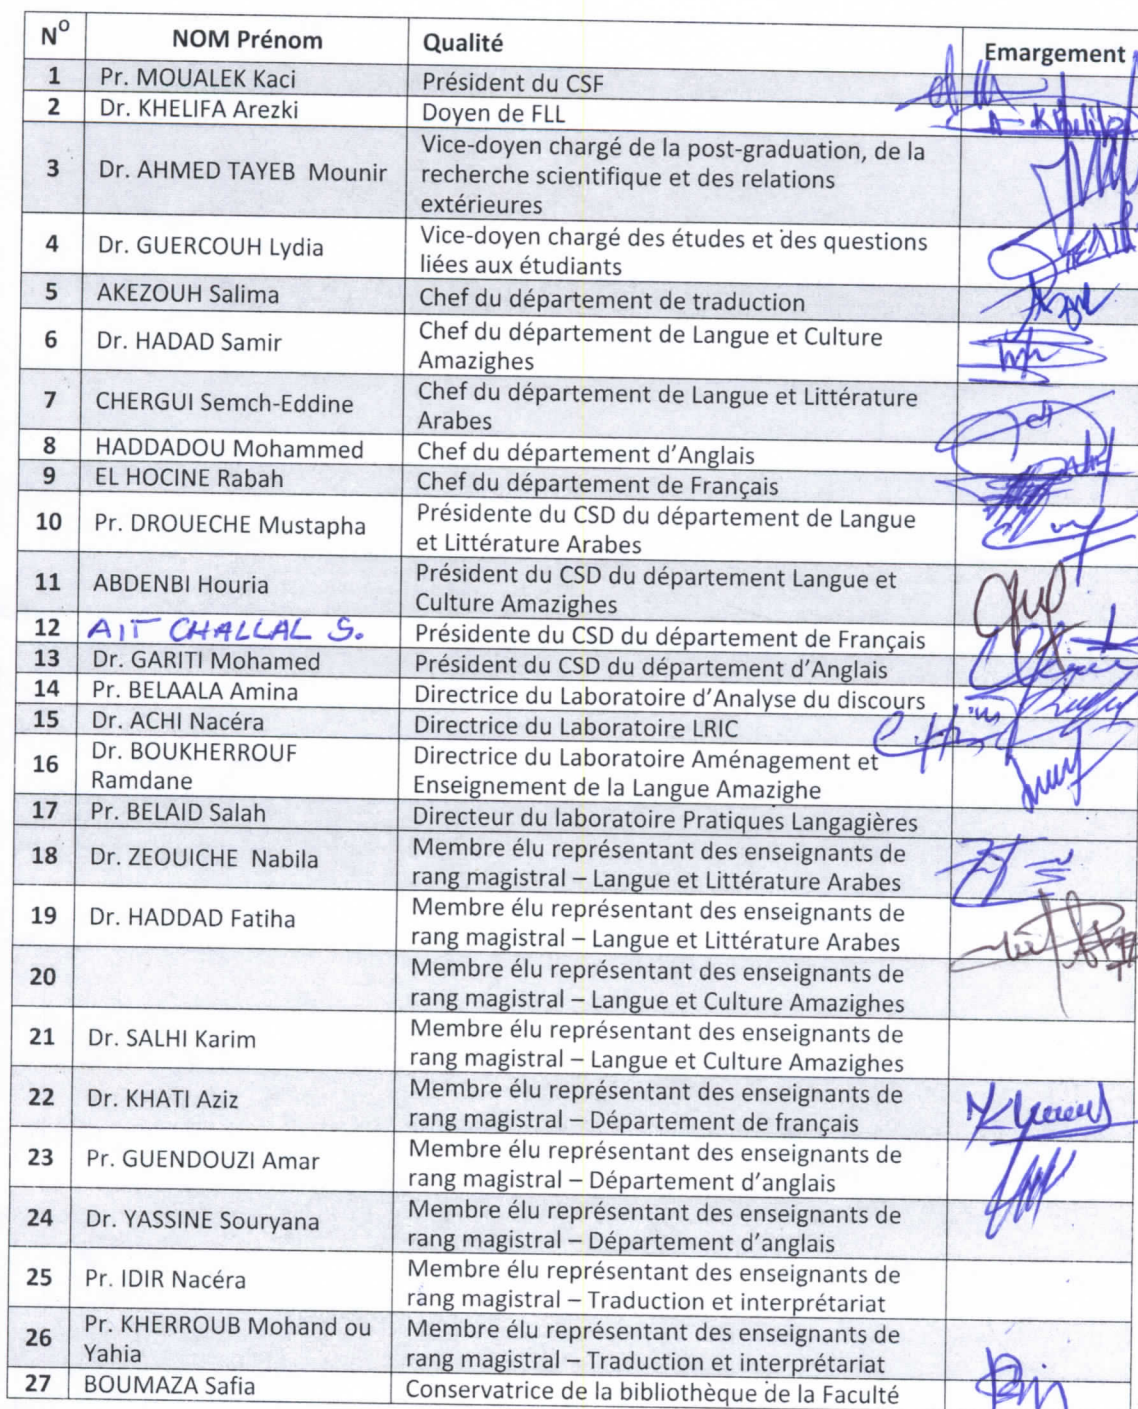 N° NOM Prénom Qualité Emargement
1 Pr. MOUALEK Kaci Président du CSF
2 Dr. KHELIFA Arezki Doyen de FLL
A. Khelifa
3 Dr. AHMED TAYEB Mounir Vice-doyen chargé de la post-graduation, de la
recherche scientifique et des relations
extérieures
4 Dr. GUERCOUH Lydia Vice-doyen chargé des études et des questions
liées aux étudiants
5 AKEZOUH Salima Chef du département de traduction
6 Dr. HADAD Samir Chef du département de Langue et Culture
Amazighes
7 CHERGUI Semch-Eddine Chef du département de Langue et Littérature
Arabes
8 HADDADOU Mohammed Chef du département d'Anglais
9 EL HOCINE Rabah Chef du département de Français
10 Pr. DROUECHE Mustapha Présidente du CSD du département de Langue
et Littérature Arabes
11 ABDENBI Houria Président du CSD du département Langue et
Culture Amazighes
12 AIT CHALLAL S. Présidente du CSD du département de Français
13 Dr. GARITI Mohamed Président du CSD du département d'Anglais
14 Pr. BELAALA Amina Directrice du Laboratoire d'Analyse du discours
15 Dr. ACHI Nacéra Directrice du Laboratoire LRIC
16 Dr. BOUKHERROUF
Ramdane Directrice du Laboratoire Aménagement et
Enseignement de la Langue Amazighe
17 Pr. BELAID Salah Directeur du laboratoire Pratiques Langagières
18 Dr. ZEOUICHE Nabila Membre élu représentant des enseignants de
rang magistral – Langue et Littérature Arabes
19 Dr. HADDAD Fatiha Membre élu représentant des enseignants de
rang magistral – Langue et Littérature Arabes
20 Membre élu représentant des enseignants de
rang magistral – Langue et Culture Amazighes
21 Dr. SALHI Karim Membre élu représentant des enseignants de
rang magistral – Langue et Culture Amazighes
22 Dr. KHATI Aziz Membre élu représentant des enseignants de
rang magistral – Département de français
23 Pr. GUENDOUZI Amar Membre élu représentant des enseignants de
rang magistral – Département d'anglais
24 Dr. YASSINE Souryana Membre élu représentant des enseignants de
rang magistral – Département d'anglais
25 Pr. IDIR Nacéra Membre élu représentant des enseignants de
rang magistral – Traduction et interprétariat
26 Pr. KHERROUB Mohand ou
Yahia Membre élu représentant des enseignants de
rang magistral – Traduction et interprétariat
27 BOUMAZA Safia Conservatrice de la bibliothèque de la Faculté